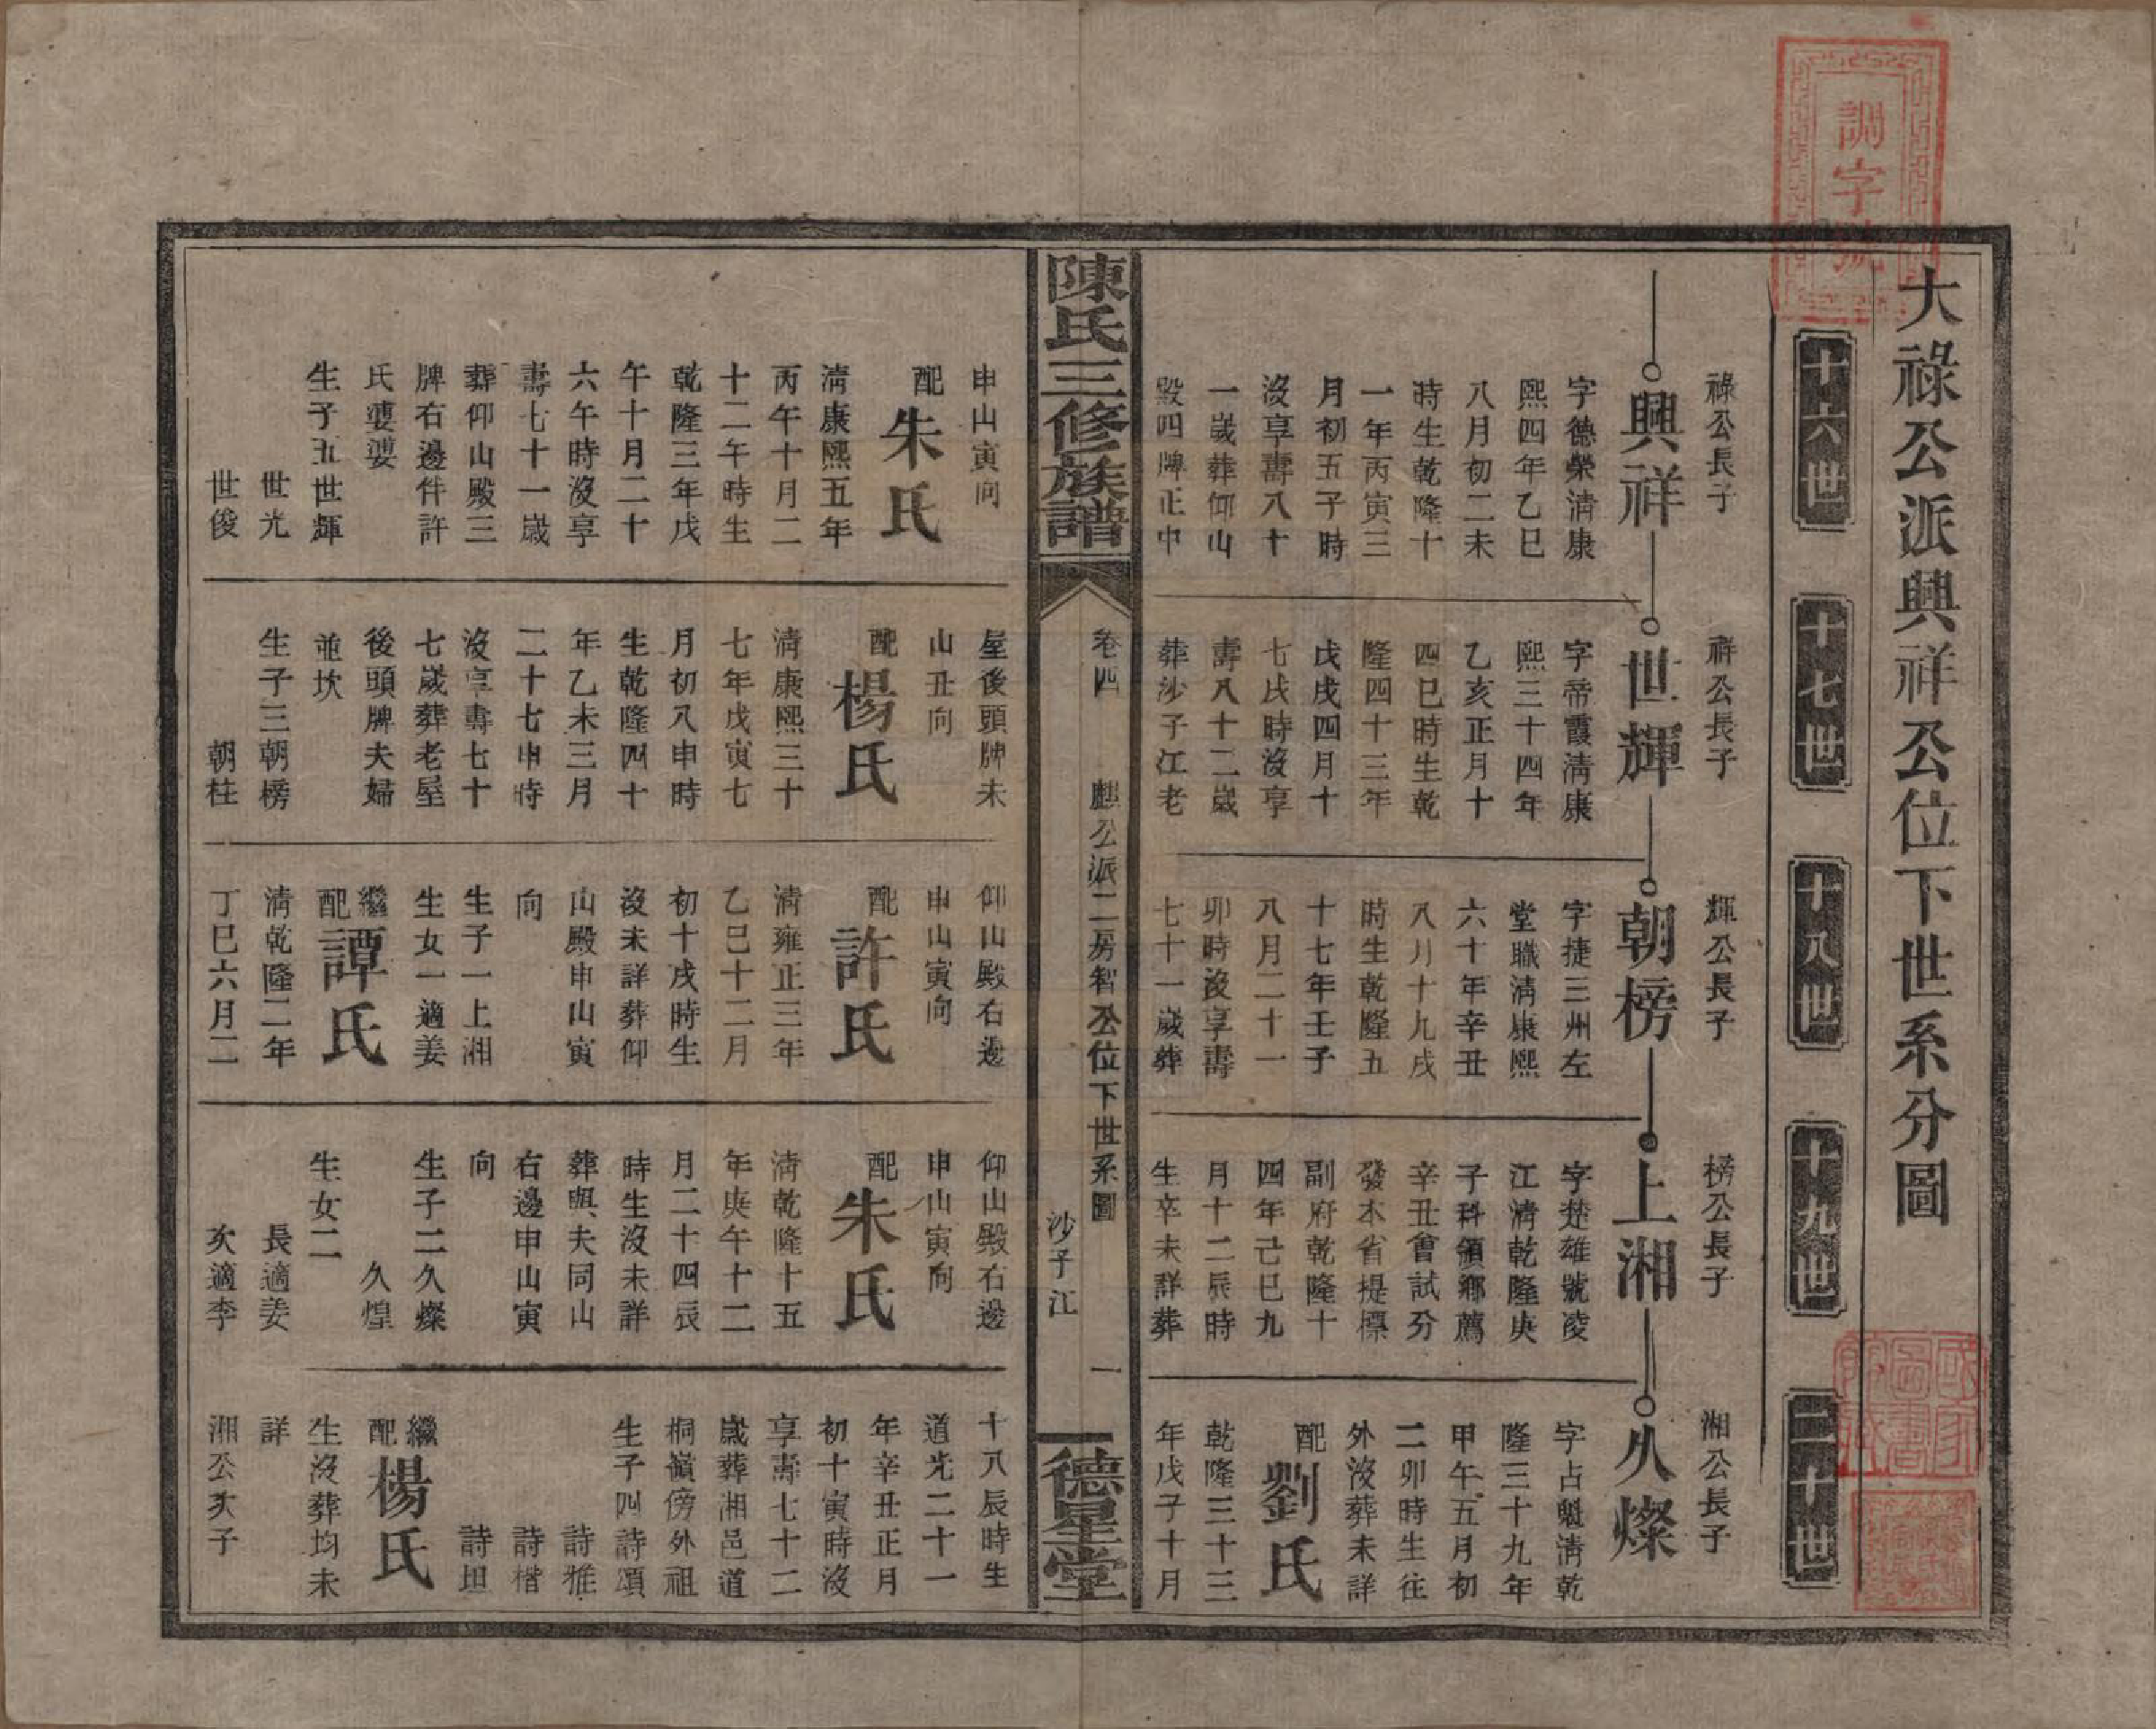 大祿公派興祥公位下世系分圖
調字號
十六世
十七世
十八世
十九世
二十世
祿公長子
興祥
字德榮淸康
熙四年乙巳
八月初二未
時生乾隆十
一年丙寅三
月初五子時
沒享壽八十
一歲葬仰山
殿四牌正中
申山寅向
配
朱氏
淸康熙五年
丙午十月二
十二午時生
乾隆三年戊
午十月二十
六午時沒享
壽七十一歲
葬仰山殿三
牌右邊伴許
氏婆婆
生子五世輝
世光
世俊
祥公長子
世輝
字帝霞淸康
熙三十四年
乙亥正月十
四巳時生乾
隆四十三年
戊戌四月十
七戌時沒享
壽八十二歲
葬沙子江老
屋後頭牌未
山丑向
配
楊氏
淸康熙三十
七年戊寅七
月初八申時
生乾隆四十
年乙未三月
二十七申時
沒享壽七十
七歲葬老屋
後頭牌夫婦
並坎
生子三朝榜
朝柱
輝公長子
朝榜
字捷三州左
堂職淸康熙
六十年辛丑
八月十九戌
時生乾隆五
十七年壬子
八月二十一
卯時沒享壽
七十一歲葬
仰山殿右邊
申山寅向
配
許氏
淸雍正三年
乙巳十二月
初十戌時生
沒未詳葬仰
山殿申山寅
向
生子一上湘
生女一適姜
繼配
譚氏
淸乾隆二年
丁巳六月二
榜公長子
上湘
字楚雄號凌
江淸乾隆庚
子科領鄉薦
辛丑會試分
發本省提標
副府乾隆十
四年己巳九
月十二辰時
生卒未詳葬
仰山殿右邊
申山寅向
配
朱氏
淸乾隆十五
年庚午十二
月二十四辰
時生沒未詳
葬與夫同山
右邊申山寅
向
生子二久燦
久煌
生女二
長適姜
次適李
湘公長子
久燦
字占魁淸乾
隆三十九年
甲午五月初
二卯時生往
外沒葬未詳
配
劉氏
乾隆三十三
年戊子十月
十八辰時生
道光二十一
年辛丑正月
初十寅時沒
享壽七十二
歲葬湘邑道
桐嶺傍外祖
生子四詩頌
詩雅
詩楷
詩坦
繼配
楊氏
生沒葬均未
詳
湘公次子
陳氏三修族譜
卷四
麒公派二房智公位下世系圖
沙子江
一
德星堂